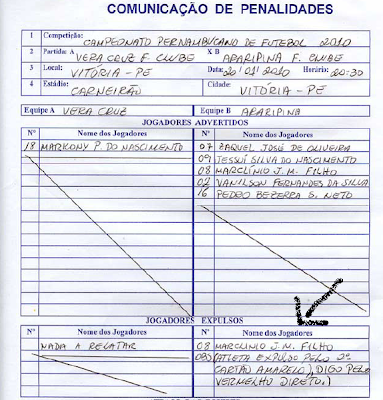 COMUNICAÇÃO DE PENALIDADES
1 Competição: CAMPEONATO PERNAMBUCANO DE FUTEBOL 2010
2 Partida: A VERA CRUZ F. CLUBE X B ARARIPINA F. CLUBE
3 Local: VITÓRIA - PE Data: 20/01/2010 Horário: 20:30
4 Estádio: CARNEIRÃO Cidade: VITÓRIA - PE
Equipe A VERA CRUZ Equipe B ARARIPINA
JOGADORES ADVERTIDOS
Nº Nome dos Jogadores Nº Nome dos Jogadores
18 MARKONY P. DO NASCIMENTO 07 ZAQUEL JOSÉ DE OLIVEIRA
09 JESSUÍ SILVA DO NASCIMENTO
08 MARCLÍNIO J. M. FILHO
02 VANILSON FERNANDES DA SILVA
16 PEDRO BEZERRA S. NETO
JOGADORES EXPULSOS
Nº Nome dos Jogadores Nº Nome dos Jogadores
NADA A RELATAR 08 MARCLINIO J. M. FILHO
(ATLETA EXPULSO PELO 2º
CARTÃO AMARELO), DIGO PELO
VERMELHO DIRETO.)